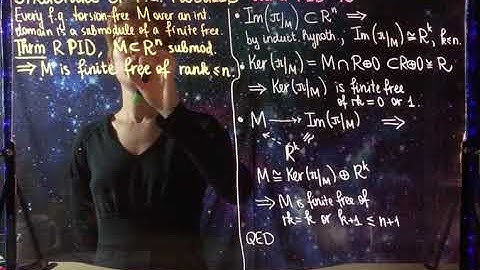 Every f.g. torsion-free M over an int.
domain is a submodule of a finite free.
Thrm R PID, M⊂Rⁿ submod.
⇒ M is finite free of rank ≤n.
• Im(π|M) ⊂ Rⁿ ⇒
by induct. hypoth., Im(π|M)≅Rᵏ, k≤n.
• Ker(π|M) = M∩R⊕0 ⊂R⊕0≅R
⇒ Ker(π|M) is finite free
of rk=0 or 1.
• M ⟶ Im(π|M) ⇒
Rᵏ
M≅Ker(π|M)⊕Rᵏ
⇒ M is finite free of
rk=k or k+1 ≤n+1
QED